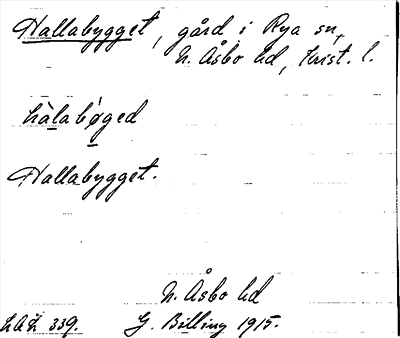 Hallabygget, gård i Rya sn,
N. Åsbo hd, Krist. l.
hàlabǿged
Hallabygget.
N. Åsbo hd
LAL 339. G. Billing 1915.